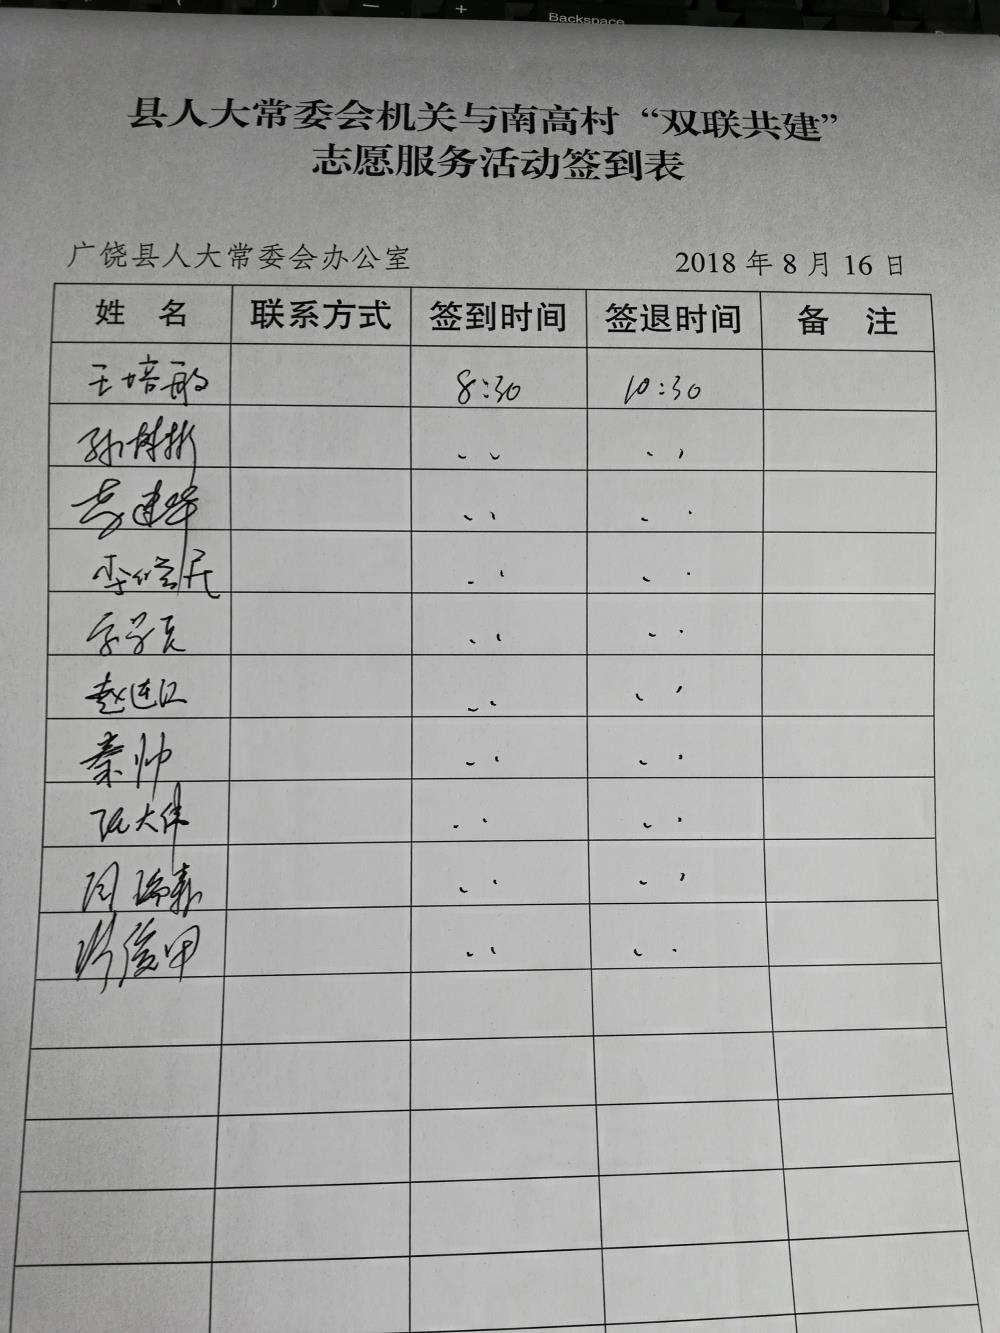 Backspace
县人大常委会机关与南高村“双联共建”
志愿服务活动签到表
广饶县人大常委会办公室 2018 年 8 月 16 日
姓 名 联系方式 签到时间 签退时间 备 注
王培敏 8:30 10:30
孙树彬
李建华
李俊民
赵连江
秦帅
阮大伟